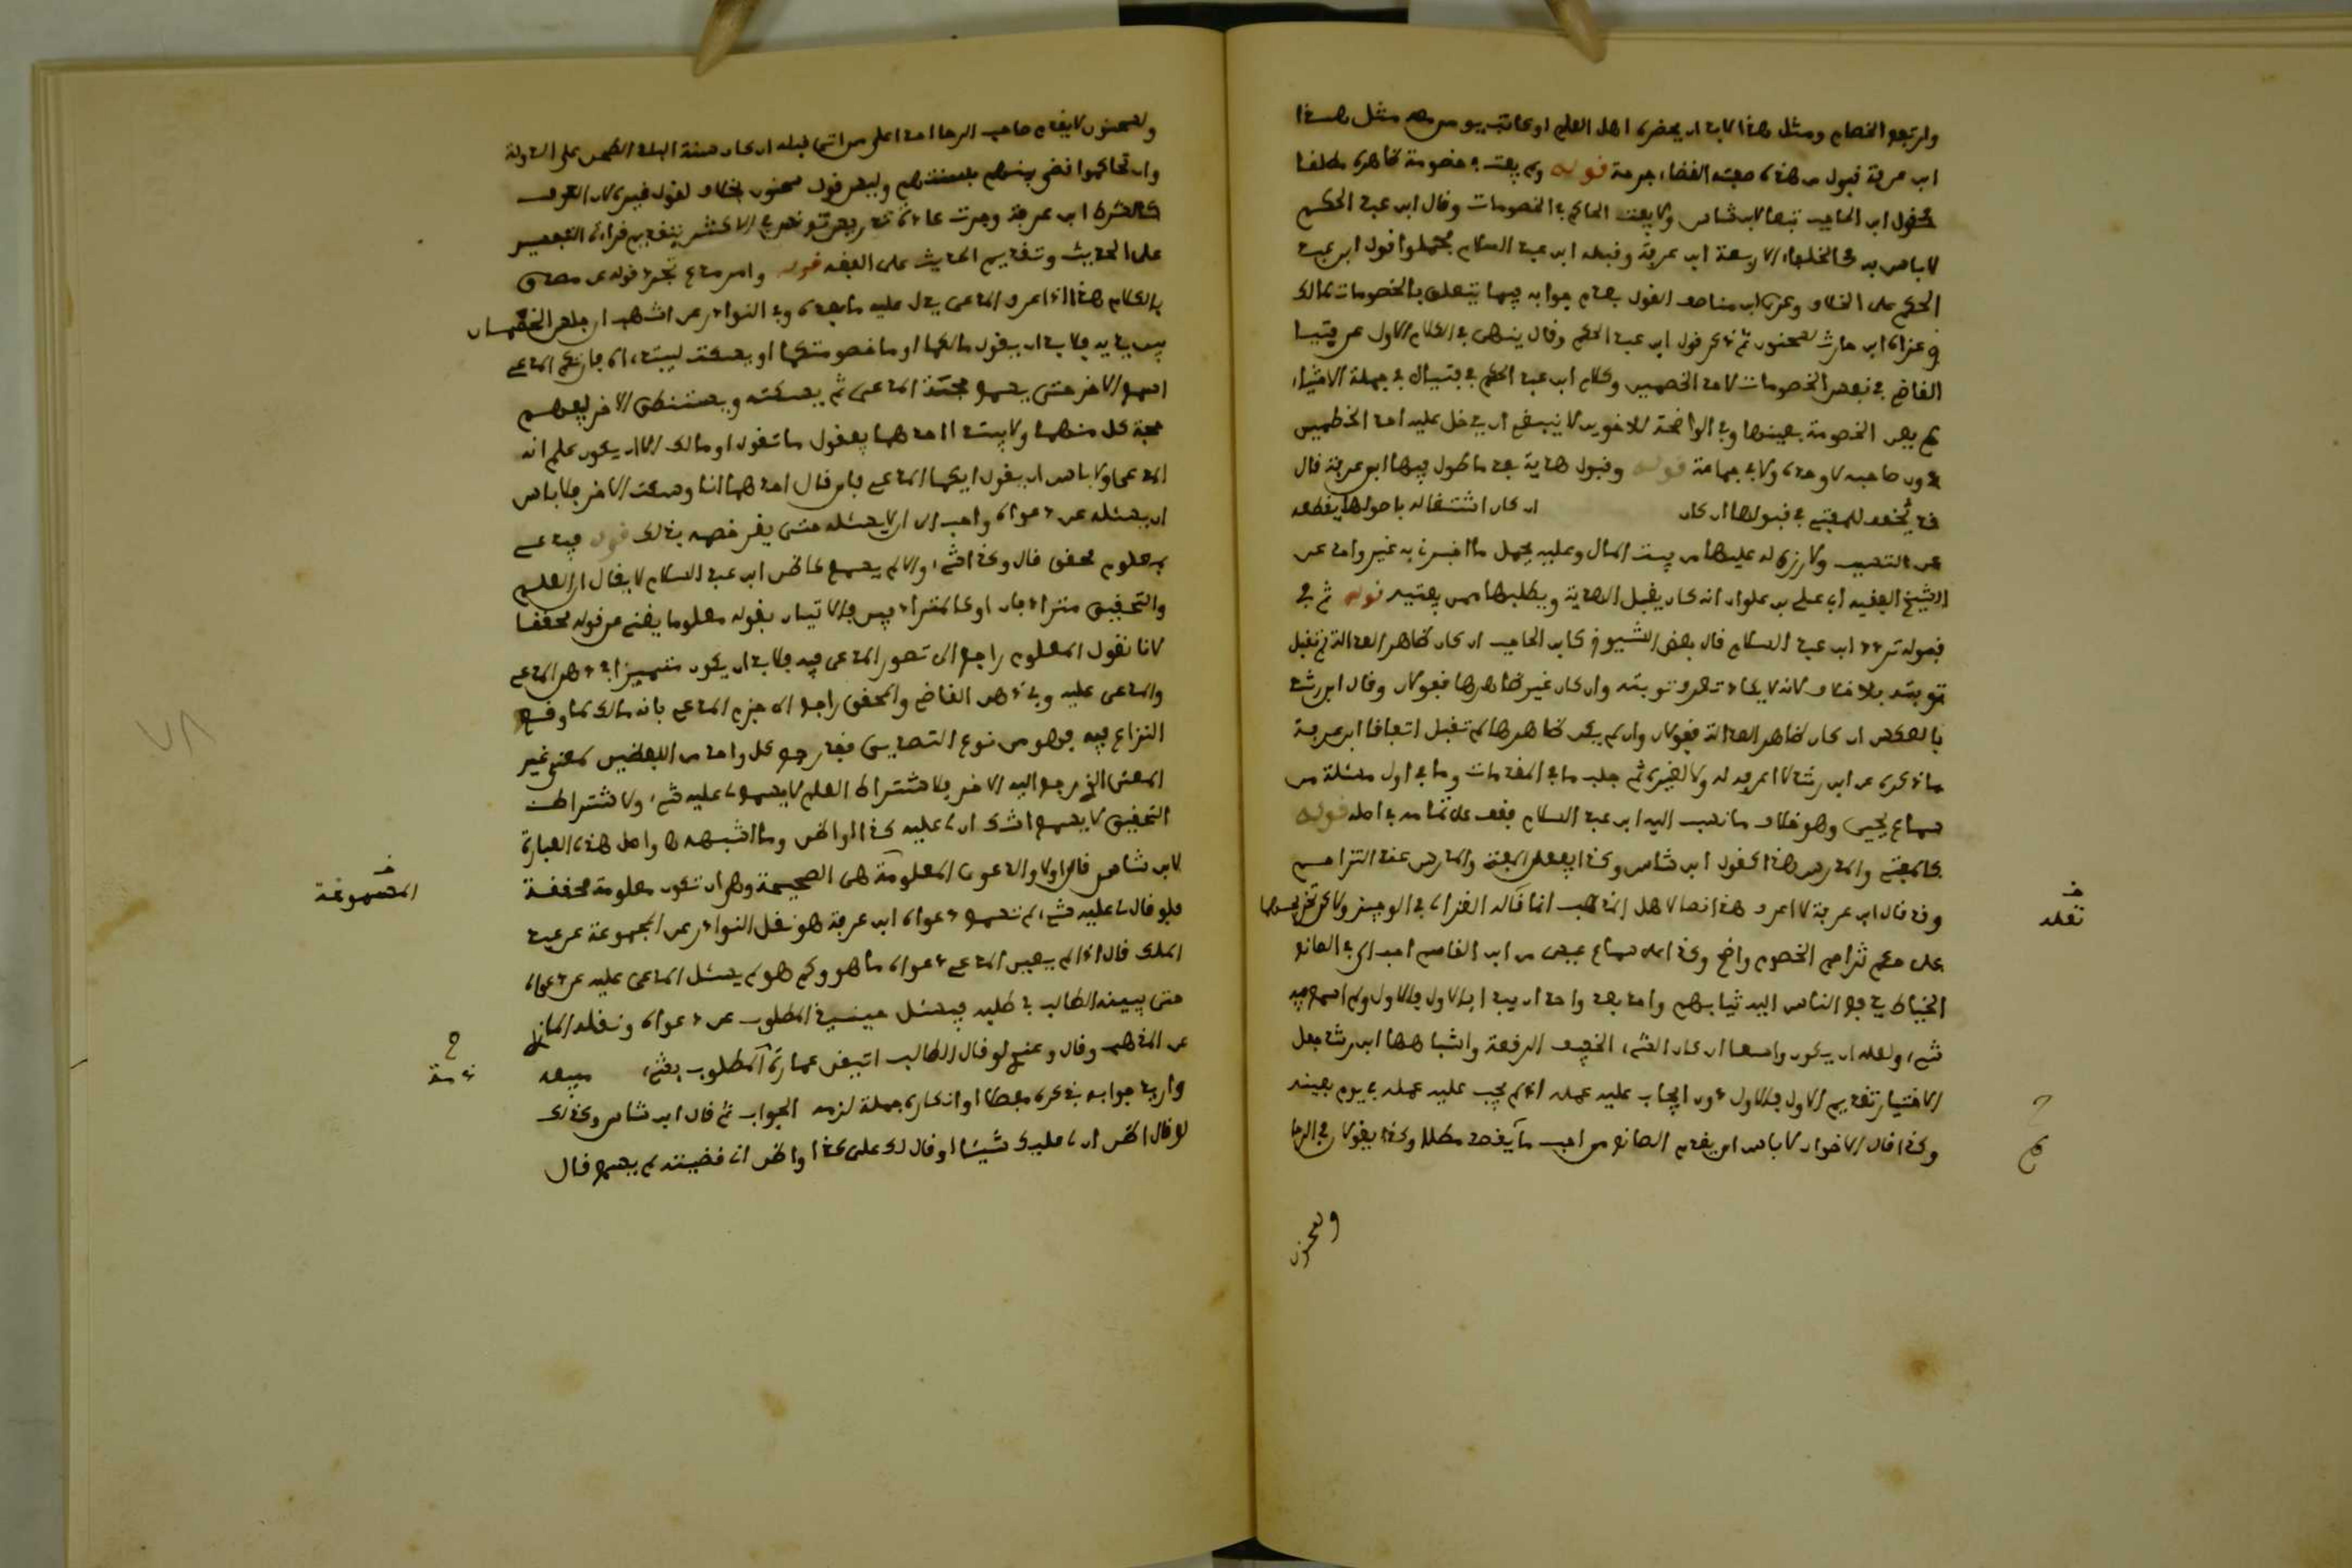 وارتجع الخصام ومثل هذا لابد ان يحضره اهل العلم او كاتب يومن معه مثل هذا
ابن عرفة قبول من هذه صفته القضاء جرحة قوله ولم يفت في خصومة ظاهره مطلقا
كقول ابن الحاجب تبعا لابن شاس ولا يفتي الحاكم في الخصومات وقال ابن عبد الحكم
لا باس به كالخلفاء الاربعة ابن عرفة وقبله ابن عبد السلام فحملوا قول ابن عبد
الحكم على الخلاف وعزا ابن مناصف القول بعدم جوابه فيما يتعلق بالخصومات لمالك
وعزاه ابن حارث لسحنون ثم ذكر قول ابن عبد الحكم وقال ينهى في الكلام الاول عن فتيا
القاضي في بعض الخصومات لاحد الخصمين وكلام ابن عبد الحكم في فتياه في جملة الاشياء
لم يعن الخصومة بعينها وفي الواضحة للاخوين لا ينبغي ان يدخل عليه احد الخصمين
دون صاحبه لا وحده ولا في جماعة قوله وقبول هدية بعد ما طول فيها ابن عرفة قال
قد يخفف للمفتي في قبولها ان كان ان كان اشتغاله باصولها يقطعه
عن التسبب ولا رزق له عليها من بيت المال وعليه يحمل ما اخبرنا به غير واحد عن
الشيخ الفقيه ابي علي بن علوان انه كان يقبل الهدية ويطلبها ممن يفتيه قوله ثم في
قبوله تردد ابن عبد السلام قال بعض الشيوخ كابن الحاجب ان كان ظاهر العدالة لم تقبل
توبته بلا خلاف لانه لا يكاد تعرف توبته وان كان غير ظاهرها فقولان وقال ابن رشد
بالعكس ان كان ظاهر العدالة فقولان وان لم يكن ظاهرها لم تقبل اتفاقا ابن عرفة
ما ذكره عن ابن رشد لا اعرفه له ولا لغيره ثم جلب ما في المقدمات وما في اول مسئلة من
سماع يحيى وهو خلاف ما نسب اليه ابن عبد السلام فقف على تمامه في اصله قوله
كالمفتي والمدرس هذا كقول ابن شاس وكذا يفعل المفتي والمدرس عند التزاحم
وقد قال ابن عرفة لا اعرف هذا نصا لاهل المذهب انما قاله الغزالي في الوجيز ولاكن تخريجهما
على حكم تزاحم الخصوم واضح وكذا له سماع عيسى من ابن القاسم احب الي في الصانع
الخياط يدفع الناس اليه ثيابهم واحد بعد واحد ان يبدا بالاول فالاول ولم اسمع فيه
شيء ولعله ان يكون واسعا ان كان الشيء الخفيف الرقعة واشباهها ابن رشد جعل
الاختيار تقديم الاول فالاول دون ايجاب عليه عمله اذ لم يجب عليه عمله في يوم بعينه
وكذا قال الاخوان لا باس ان يقدم الصانع من احب ما لم يقصد مطلا وكذا يقولان في الرحا
ولسحنون
نقله
ولسحنون لا يقدم صاحب الرحا احدا على من اتى قبله ان كان سنة البلد الطحن على الدولة
وان تحاكموا قضى بينهم بسنتهم وليس قول سحنون بخلاف لقول غيره لان العرف
كالشرط ابن عرفة وجرت عادة
على الحديث وتقديم الحديث على الفقه قوله وامر مدع تجرد قوله عن مصدق
بالكلام هذا اذا عرف المدعي يدل عليه ما بعده وفي النوادر عن اشهب ان جلس الخصمان
بين يديه فلا باس ان يقول مالكما او ما خصومتكما او يسكت ليبتدءاه فان تكلم المدعي
اسمع الاخر حتى يسمع حجة المدعي ثم يسكته ويستنطق الاخر ليفهم
حجة كل منهما ولا يبتدا احدهما فيقول ما تقول او مالك الا ان يكون علم انه
المدعي ولا باس ان يقول ايكما المدعي فان قال احدهما انا وسكت الاخر فلا باس
ان يسئله عن دعواه واحب الي ان لا يسئله حتى يقر خصمه بذلك قوله فيدعي
بمعلوم محقق قال وكذا شيء والا لم يسمع كاظن ابن عبد السلام لا يقال ان العلم
والتحقيق مترادفان او كالمترادفين فالاتيان بقوله معلوما يغني عن قوله محققا
لانا نقول المعلوم راجع الى تصور المدعى فيه فلا بد ان يكون متميزا في ذهن المدعي
والمدعى عليه وفي ذهن القاضي والمحقق راجع الى جزم المدعي بانه مالك لما وقع
النزاع فيه فهو من نوع التصديق فقد رجع كل واحد من اللفظين لمعنى غير
المعنى الذي رجع اليه الاخر فلاشتراط العلم لا يسمع لي عليه شيء ولاشتراط
التحقيق لا يسمع اشك ان لي عليه كذا او اظن وما اشبهها واصل هذه العبارة
لابن شاس قال اولا والدعوى المعلومة هي الصحيحة وهي ان تكون معلومة محققة
فلو قال لي عليه شيء لم تسمع دعواه ابن عرفة هو نقل النوادر عن المجموعة عن عبد
الملك قال اذا لم يبين المدعي دعواه ما هو وكم هو لم يسئل المدعى عليه عن دعواه
حتى يبينه الطالب في طلبه فيسئل حينئذ المطلوب عن دعواه ونقله المازري
عن المذهب وقال وعندي لو قال الطالب اتيقن عمارة ذمة المطلوب بشيء مبلغه
واريد جوابه بذكره مفصلا او انكاره جملة لزمه الجواب ثم قال ابن شاس وكذلك
لو قال اظن ان لي عليك شيئا او قال لك علي كذا واظن اني قضيته لم يسمع قال
المجموعة
ذمة
٧٨